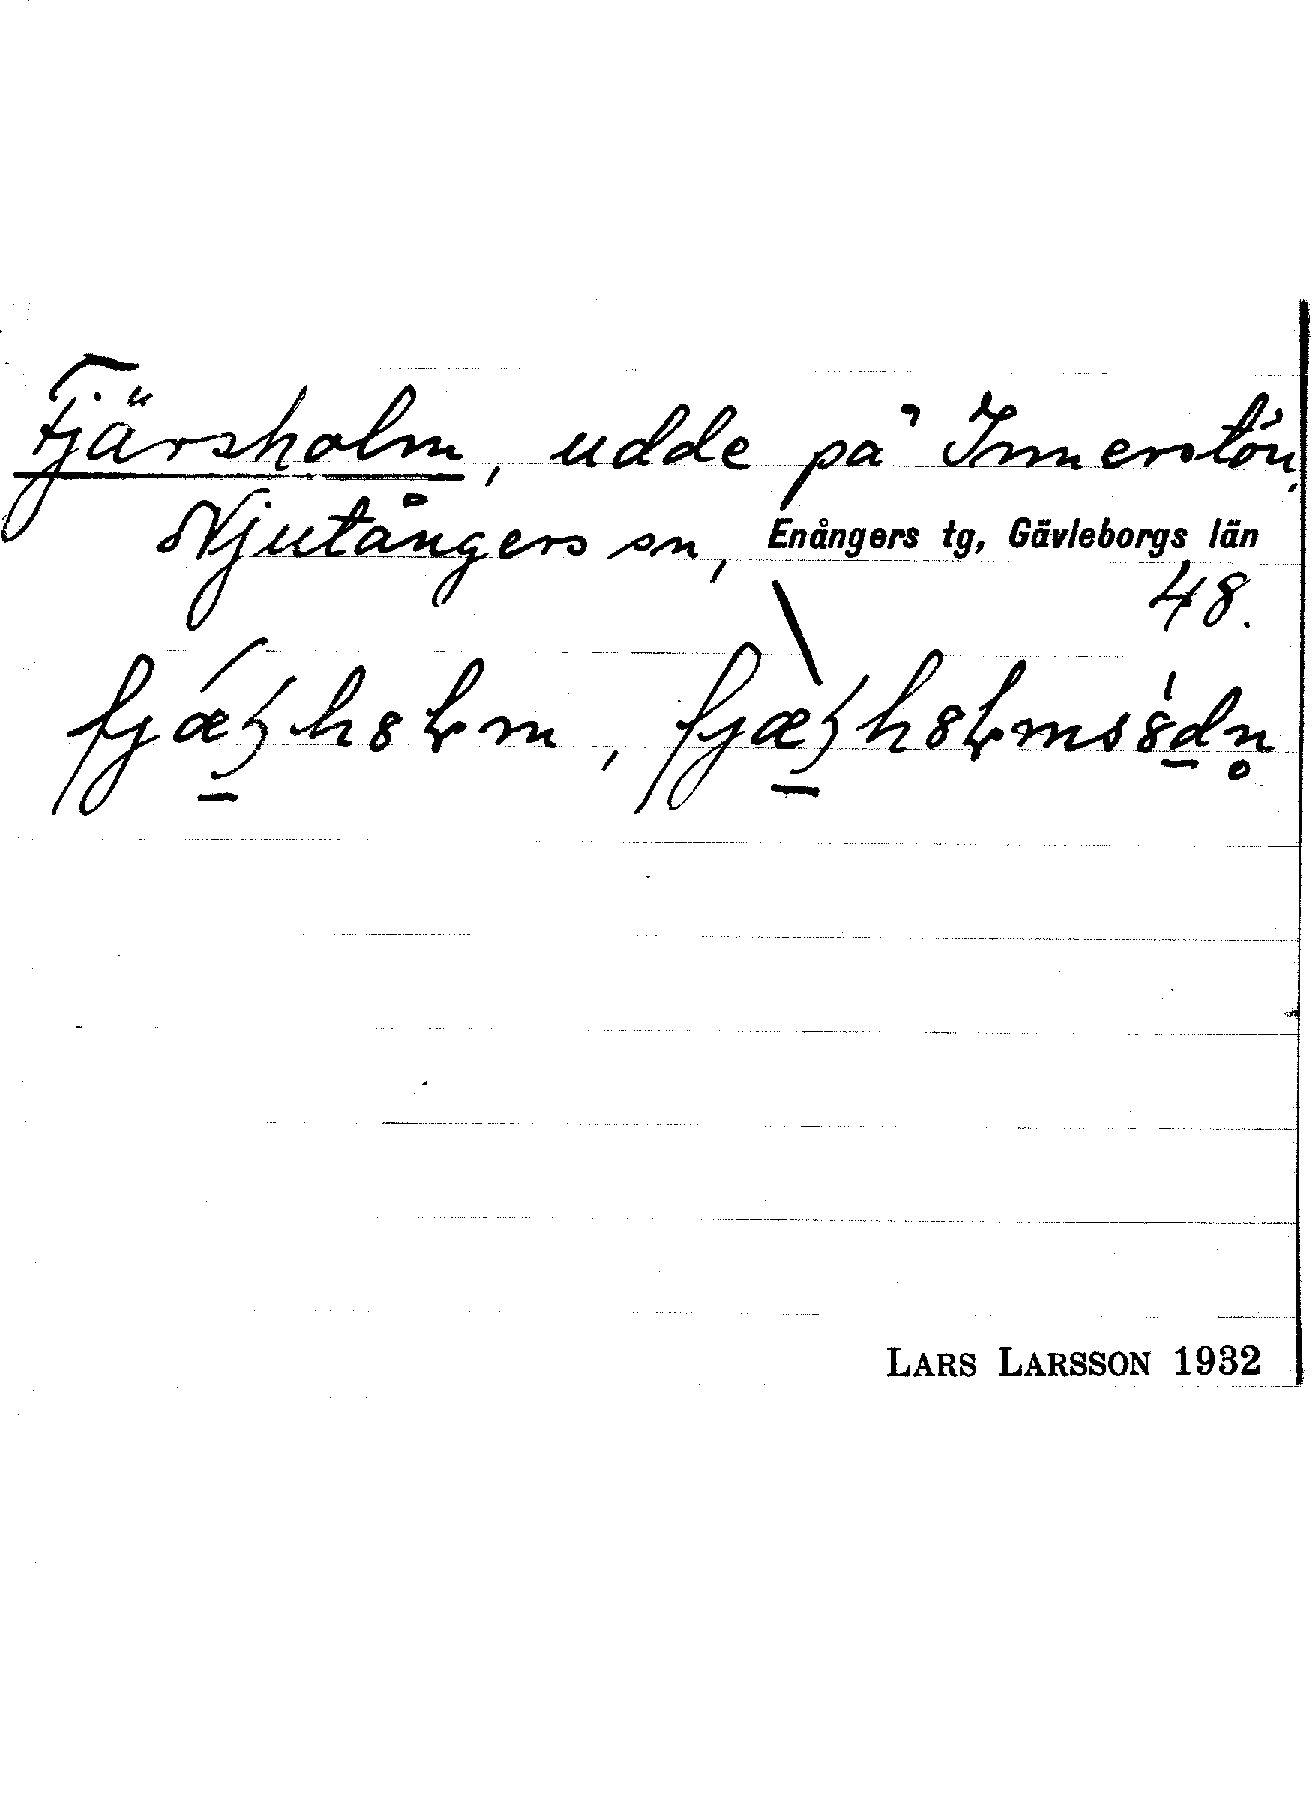 Fjärsholm, udde på Innerstön,
Njutångers sn, Enångers tg, Gävleborgs län
48.
LARS LARSSON 1932